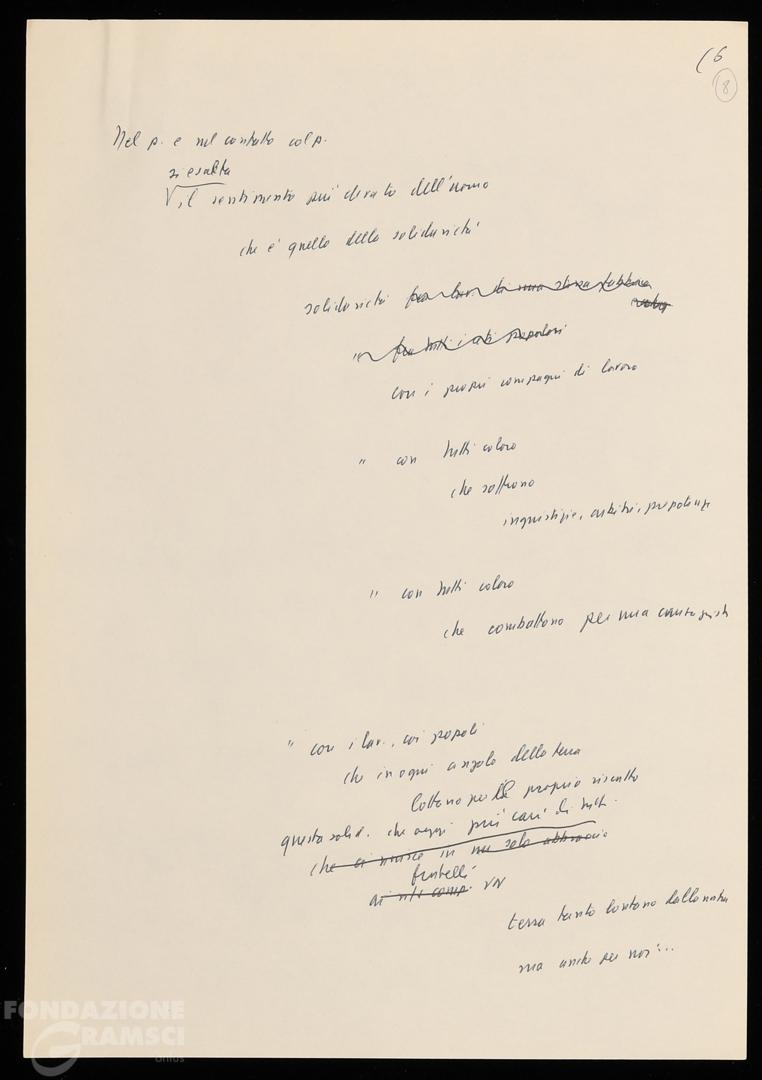 (6
8
Nel p. e nel contatto col p.
si esalta
il sentimento più elevato dell'uomo
che è quello della solidarietà
solidarietà fra lav. di una stessa fabbrica
" fra tutti i popolari
con i propri compagni di lavoro
" con tutti coloro
che soffrono
ingiustizie, arbitri, prepotenze
" con tutti coloro
che combattono per una causa giusta
" con i lav., coi popoli
che in ogni angolo della terra
lottano per il proprio riscatto
questa solid. che oggi più cari di tutti.
che ci unisce in un solo abbraccio
fratelli
ai ntr comp. VN
terra tanto lontana dalla nostra
ma anche per noi...
FONDAZIONE
GRAMSCI
onlus